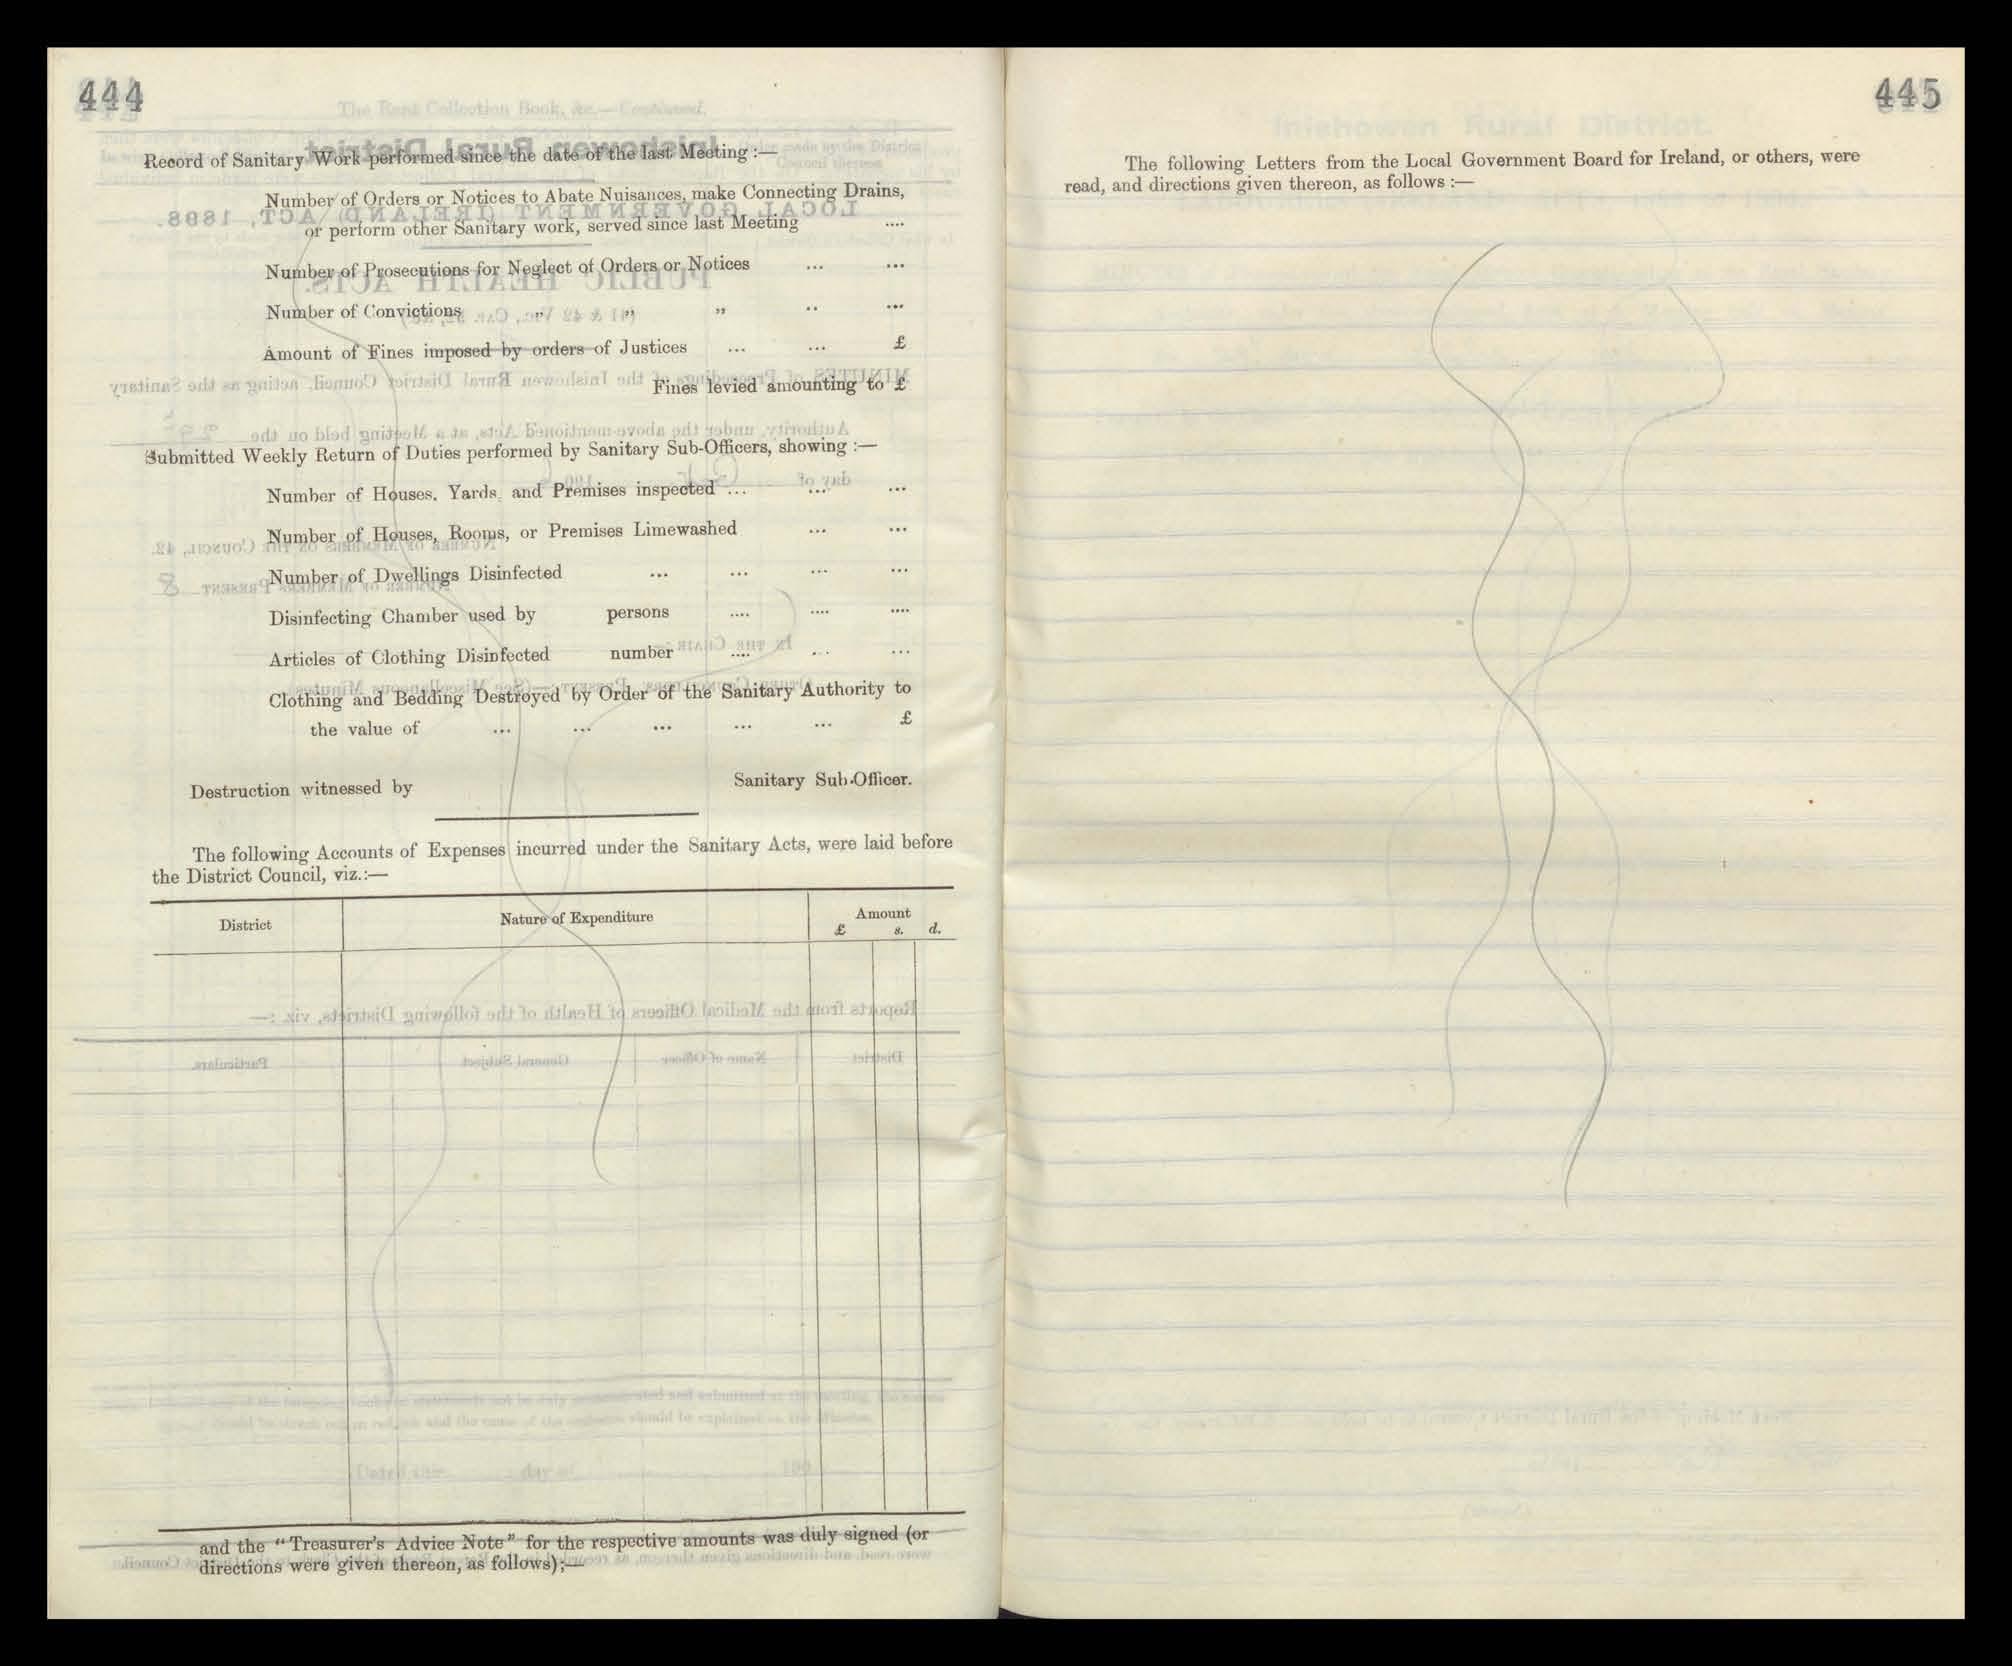 444
Record of Sanitary Work performed since the date of the last Meeting :—
Number of Orders or Notices to Abate Nuisances, make Connecting Drains,
or perform other Sanitary work, served since last Meeting ....
Number of Prosecutions for Neglect of Orders or Notices ... ...
Number of Convictions „ „ „ .. ...
Amount of Fines imposed by orders of Justices ... ... £
Fines levied amounting to £
Submitted Weekly Return of Duties performed by Sanitary Sub-Officers, showing :—
Number of Houses, Yards, and Premises inspected ... ... ...
Number of Houses, Rooms, or Premises Limewashed ... ...
Number of Dwellings Disinfected ... ... ... ...
Disinfecting Chamber used by persons .... .... ....
Articles of Clothing Disinfected number .... ... ...
Clothing and Bedding Destroyed by Order of the Sanitary Authority to
the value of ... ... ... ... ... £
Destruction witnessed by Sanitary Sub-Officer.
The following Accounts of Expenses incurred under the Sanitary Acts, were laid before
the District Council, viz.:—
District Nature of Expenditure Amount
£ s. d.
and the “Treasurer’s Advice Note” for the respective amounts was duly signed (or
directions were given thereon, as follows);—
445
The following Letters from the Local Government Board for Ireland, or others, were
read, and directions given thereon, as follows :—